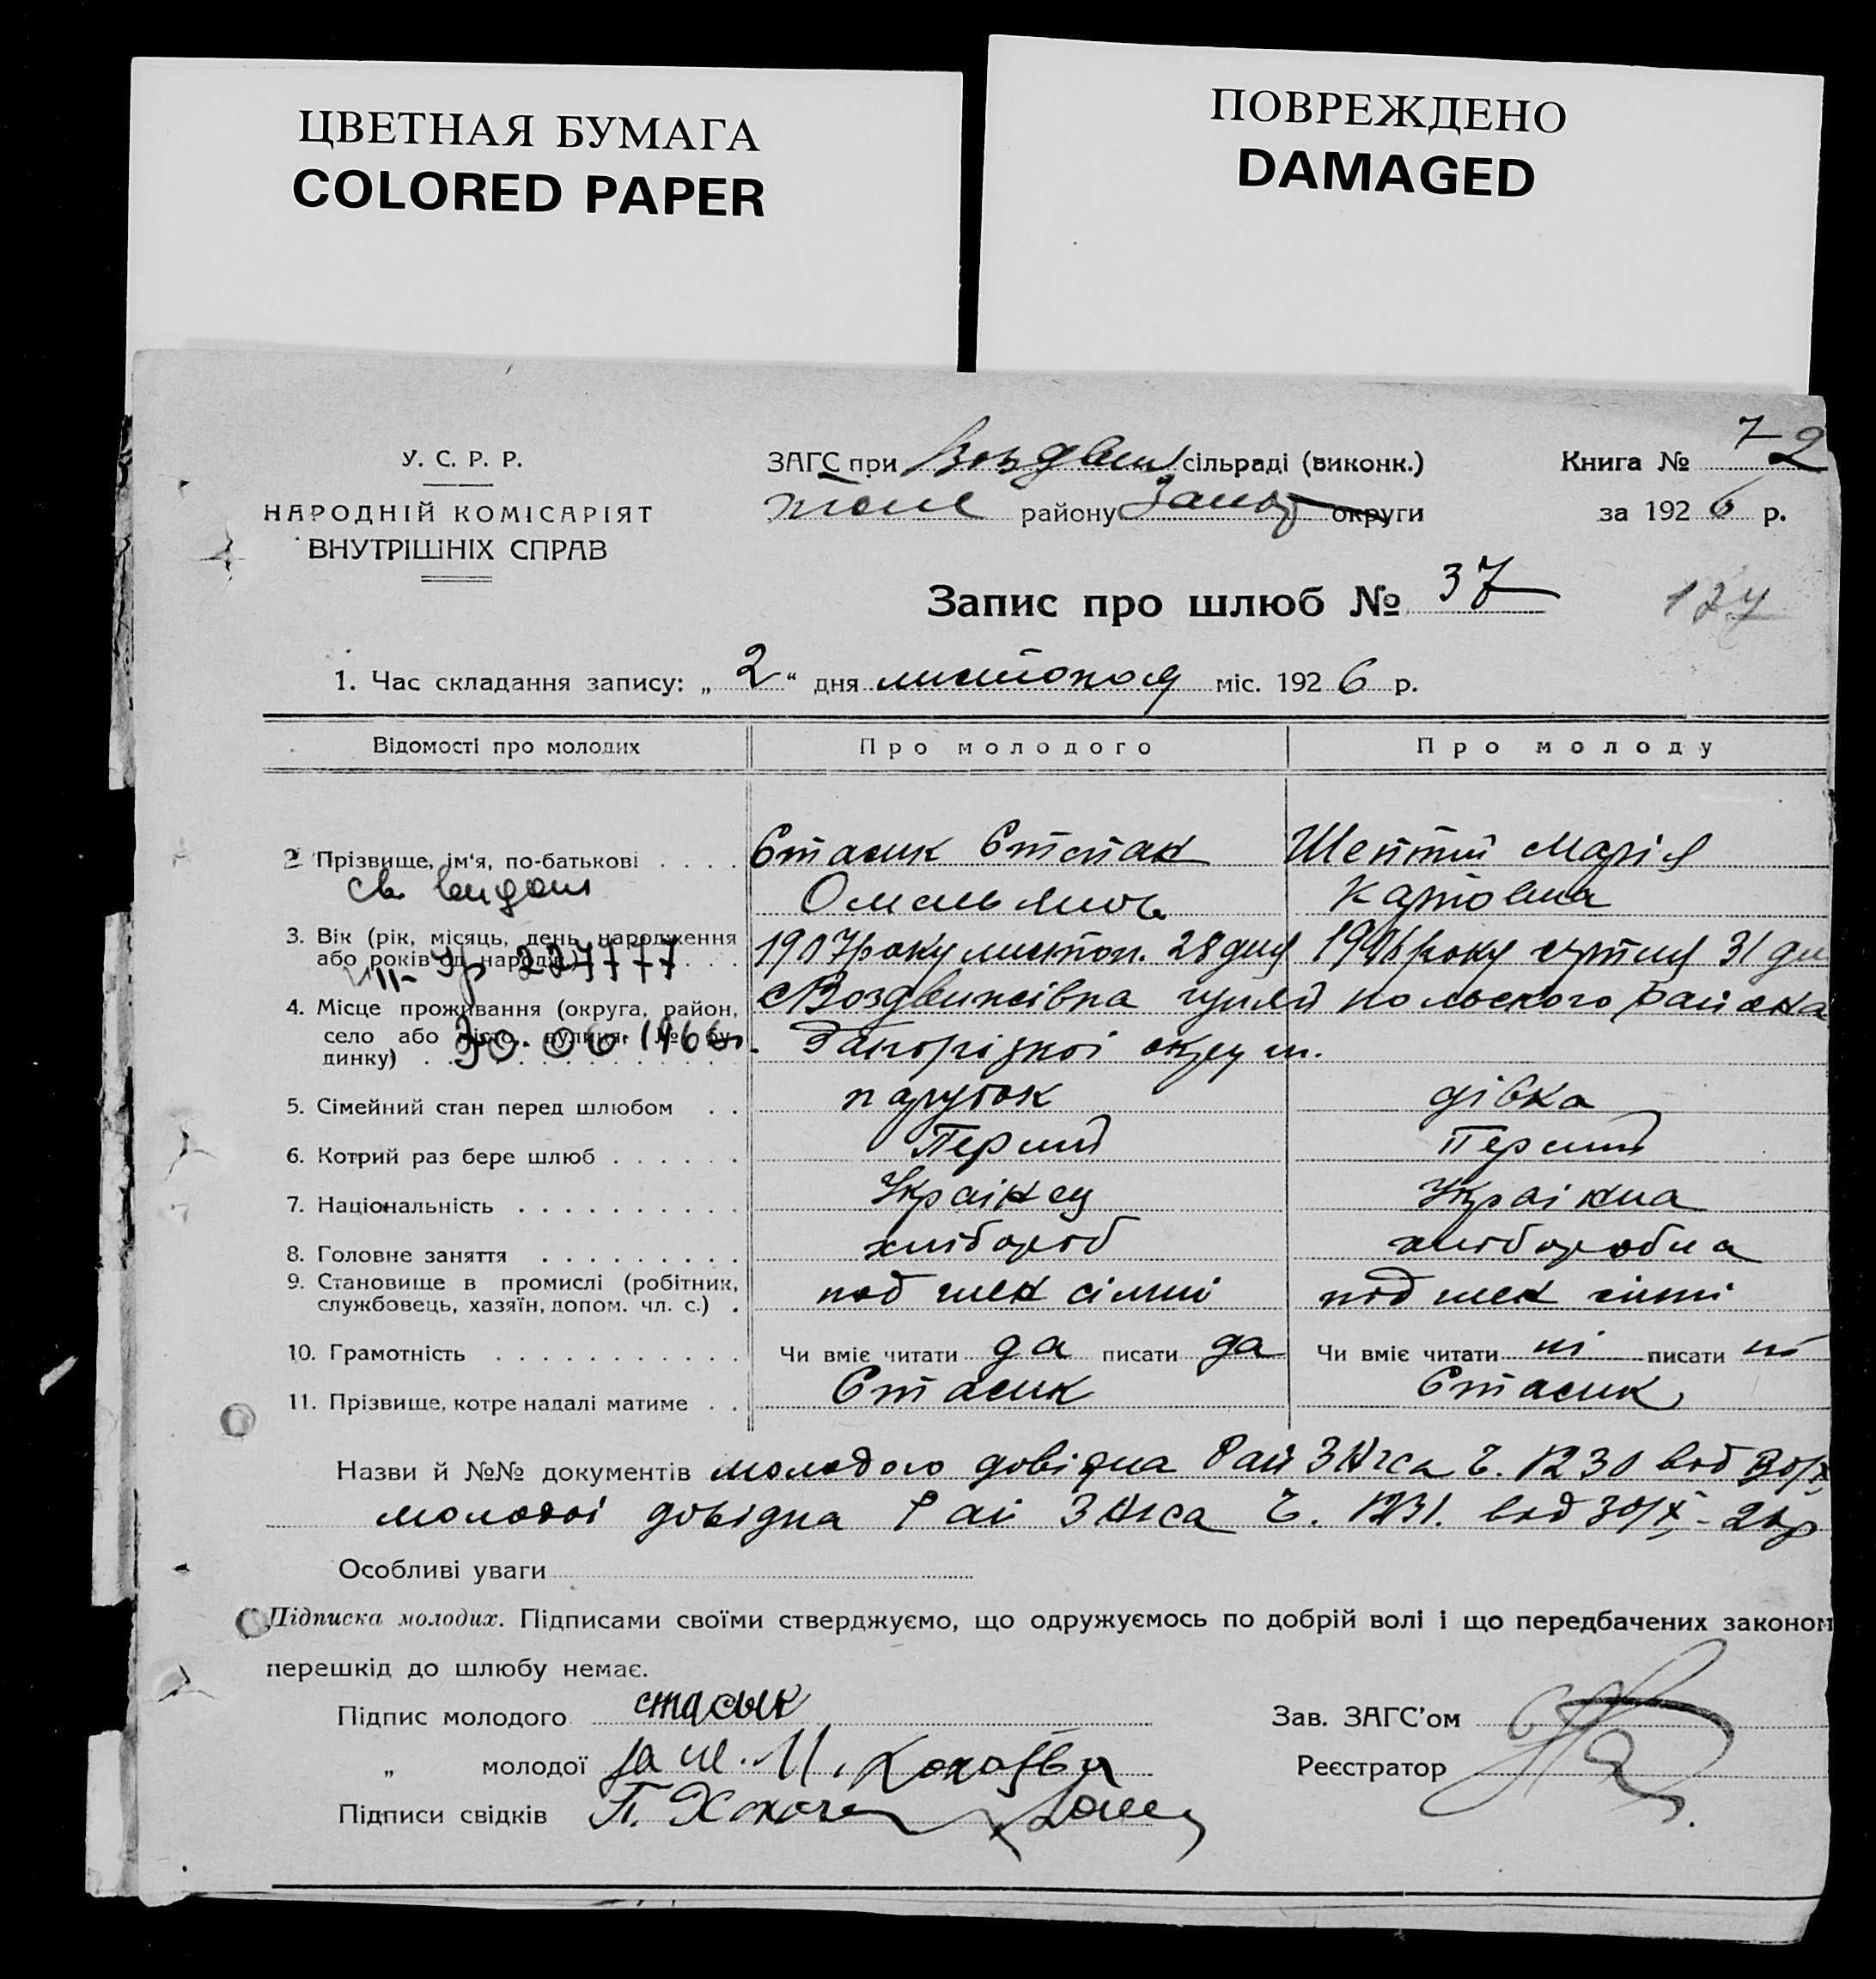 ЦВЕТНАЯ БУМАГА
COLORED PAPER
ПОВРЕЖДЕНО
DAMAGED
У. С. Р. Р.
НАРОДНІЙ КОМІСАРІЯТ
ВНУТРІШНІХ СПРАВ
ЗАГС при Воздвиж сільраді (виконк.)
району Запор округи
Книга № 72
за 1926 р.
Запис про шлюб № 37
1. Час складання запису: „ 2 “ дня листопад міс. 1926 р.
Відомості про молодих Про молодого Про молоду
2 Прізвище, ім‘я, по-батькові Стасик Степан Шептій Марія
св. видано Омельянов Карповна
3. Вік (рік, місяць, день народження 1907 року листоп. 28 дня року серпня 31 дня
або років від народж.)
VIII-Ур 227777
4. Місце проживання (округа, район, с Воздвижівка гуляй польского района
село або місто, вулиця, № бу- Запорізкої округи.
динку)
30.06.1966г.
5. Сімейний стан перед шлюбом парубок дівка
6. Котрий раз бере шлюб Перший Перший
7. Національність Українец Українка
8. Головне заняття хлібороб хліборобка
9. Становище в промислі (робітник,
службовець, хазяїн, допом. чл. с.) под член сімї под член сімї
10. Грамотність Чи вміє читати да писати да Чи вміє читати ні писати ні
11. Прізвище, котре надалі матиме Стасик Стасик
Назви й №№ документів молодого довідка Рай ЗАгса Ч. 1230 від 30/X
молодої довідка Рай ЗАгса Ч. 1231. від 30/X - 26р
Особливі уваги
Підписка молодих. Підписами своїми стверджуємо, що одружуємось по добрій волі і що передбачених законом
перешкід до шлюбу немає.
Підпис молодого стасык
„ молодої за
Підписи свідків П.
Зав. ЗАГС’ом
Реєстратор